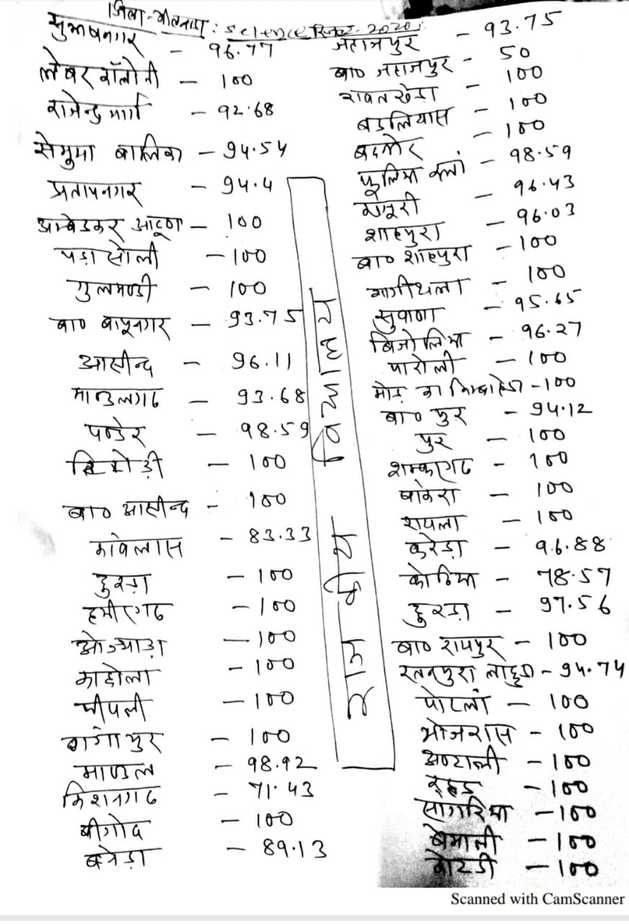 जिला - भीलवाड़ा : Science Result 2020
सुभाषनगर - 96.77
लेबर कॉलोनी - 100
राजेन्द्र मार्ग - 92.68
सेमुमा बालिका - 94.54
प्रतापनगर - 94.4
अम्बेडकर आटूण - 100
पड़ासोली - 100
गुलमण्डी - 100
बा० बापूनगर - 93.75
आसीन्द - 96.11
माण्डलगढ - 93.68
पण्डेर - 98.59
100
बा० आसीन्द - 100
कांवलास - 83.33
हुरड़ा - 100
हमीरगढ - 100
ओज्याड़ा - 100
काडोला - 100
पीपली - 100
गंगापुर - 100
माण्डल - 98.92
किशनगढ - 71.43
बीगोद - 100
बनेड़ा - 89.13
जहाजपुर - 93.75
बा० जहाजपुर - 50
रावतखेडा - 100
बडलियास - 100
बदनोर - 100
फूलिया कलां - 98.59
खजूरी - 96.43
शाहपुरा - 96.03
बा० शाहपुरा - 100
100
सुवाणा - 95.65
बिजोलिया - 96.27
पारोली - 100
मोड का निम्बाहेडा - 100
बा० पुर - 94.12
पुर - 100
शम्भूगढ - 100
बांकरा - 100
रायला - 100
करेड़ा - 96.88
कोठिया - 78.57
हुरड़ा - 97.56
बा० रायपुर - 100
रतनपुरा लाडुडा - 94.74
पोटलां - 100
भोजरास - 100
अण्टाली - 100
रूहड - 100
सांगरिया - 100
बेमाली - 100
बोरडी - 100
Scanned with CamScanner